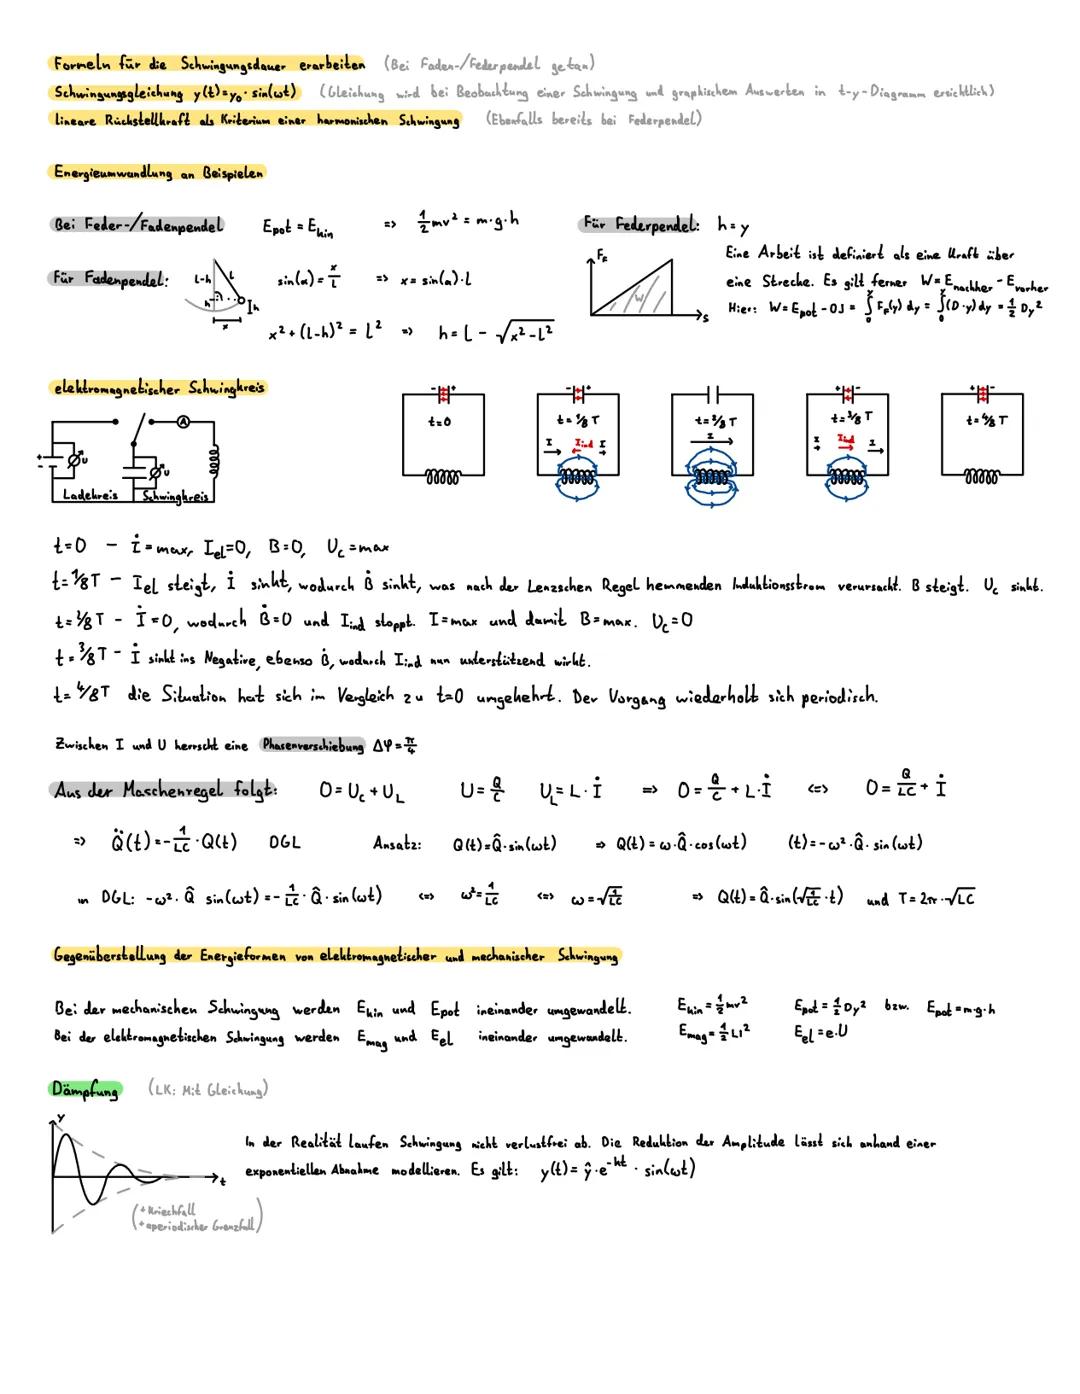 Formeln für die Schwingungsdauer erarbeiten (Bei Faden-/Federpendel getan)
Schwingungsgleichung y(t)=y₀· sin(ωt) (Gleichung wird bei Beobachtung einer Schwingung und graphischem Auswerten in t-y-Diagramm ersichtlich)
lineare Rückstellkraft als Kriterium einer harmonischen Schwingung (Ebenfalls bereits bei Federpendel)
Energieumwandlung an Beispielen
Bei Feder-/Fadenpendel E_pot = E_kin => ½mv² = m·g·h
Für Federpendel: h=y
Für Fadenpendel: l-h l h x h sin(α)=x/l => x= sin(α)·l
x²+(l-h)² = l² => h=l - √(x²-l²)
F_F W s
Eine Arbeit ist definiert als eine Kraft über
eine Strecke. Es gilt ferner W=E_nachher - E_vorher
Hier: W=E_pot-0J = ∫₀ʸ F_F(y) dy = ∫₀ʸ(D·y)dy = ½ Dy²
elektromagnetischer Schwingkreis
+ - U U A Ladekreis Schwingkreis
- + t=0
- + t=⅛T I I_ind I
t=2/8 T I
+ - t=3/8 T I I_ind I
+ - t=4/8 T
t=0 - İ=max, I_el=0, B=0, U_C=max
t=1/8T - I_el steigt, İ sinkt, wodurch Ḃ sinkt, was nach der Lenzschen Regel hemmenden Induktionsstrom verursacht. B steigt. U_C sinkt.
t=2/8T - İ=0, wodurch Ḃ=0 und I_ind stoppt. I=max und damit B=max. U_C=0
t=3/8T - İ sinkt ins Negative, ebenso Ḃ, wodurch I_ind nun unterstützend wirkt.
t=4/8T die Situation hat sich im Vergleich zu t=0 umgekehrt. Der Vorgang wiederholt sich periodisch.
Zwischen I und U herrscht eine Phasenverschiebung Δφ=π/4
Aus der Maschenregel folgt: 0=U_C+U_L U=Q/C U_L=L·İ => 0=Q/C+L·İ <=> 0=Q/LC+İ
=> Q̈(t)=-1/LC·Q(t) DGL Ansatz: Q(t)=Q̂·sin(ωt) => Q(t)=ω·Q̂·cos(ωt) (t)=-ω²·Q̂·sin(ωt)
in DGL: -ω²·Q̂ sin(ωt)=-1/LC·Q̂·sin(ωt) <=> ω²=1/LC <=> ω=√(1/LC) => Q(t)=Q̂·sin(√(1/LC)·t) und T=2π·√LC
Gegenüberstellung der Energieformen von elektromagnetischer und mechanischer Schwingung
Bei der mechanischen Schwingung werden E_kin und E_pot ineinander umgewandelt. E_kin=½mv² E_pot=½Dy² bzw. E_pot=m·g·h
Bei der elektromagnetischen Schwingung werden E_mag und E_el ineinander umgewandelt. E_mag=½LI² E_el=e·U
Dämpfung (LK: Mit Gleichung)
y t
In der Realität laufen Schwingung nicht verlustfrei ab. Die Reduktion der Amplitude lässt sich anhand einer
exponentiellen Abnahme modellieren. Es gilt: y(t)=ŷ·e^-kt · sin(ωt)
(+Kriechfall
+aperiodischer Grenzfall)